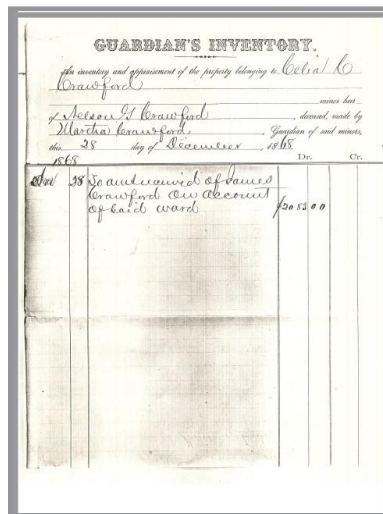 GUARDIAN'S INVENTORY.
An inventory and appraisement of the property belonging to Celia C
Crawford
minor heir
of Nelson G Crawford, deceased, made by
Martha Crawford, Guardian of said minors,
this 28 day of December, 1868
1868 Dr. Cr.
28 To amt received of James
Crawford on account
of said ward